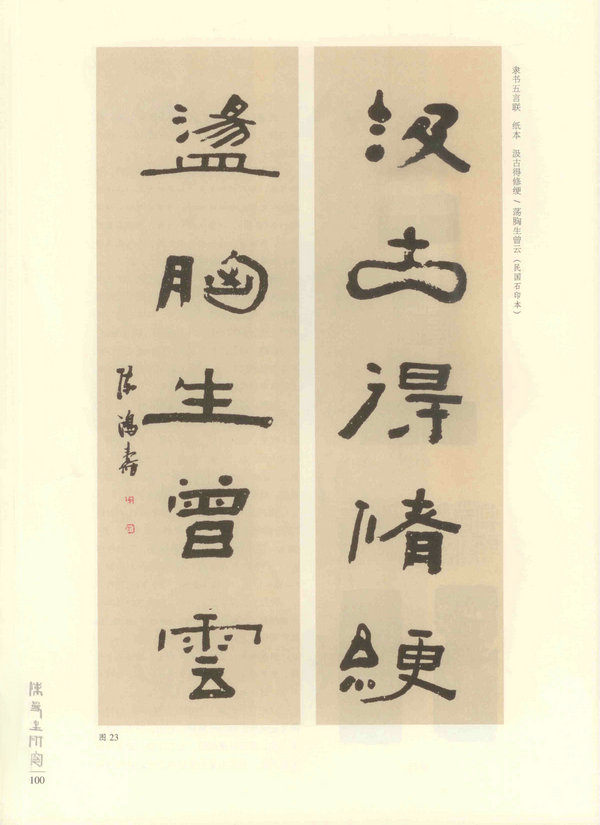 隶书五言联 纸本 汲古得修绠／荡胸生曾云（民国石印本）
汲古得脩綆
盪胸生曾雲
陈鸿寿
图 23
100